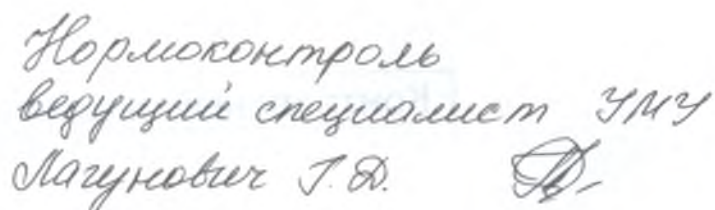 Нормоконтроль
ведущий специалист УМУ
Лагунович Г.Д.